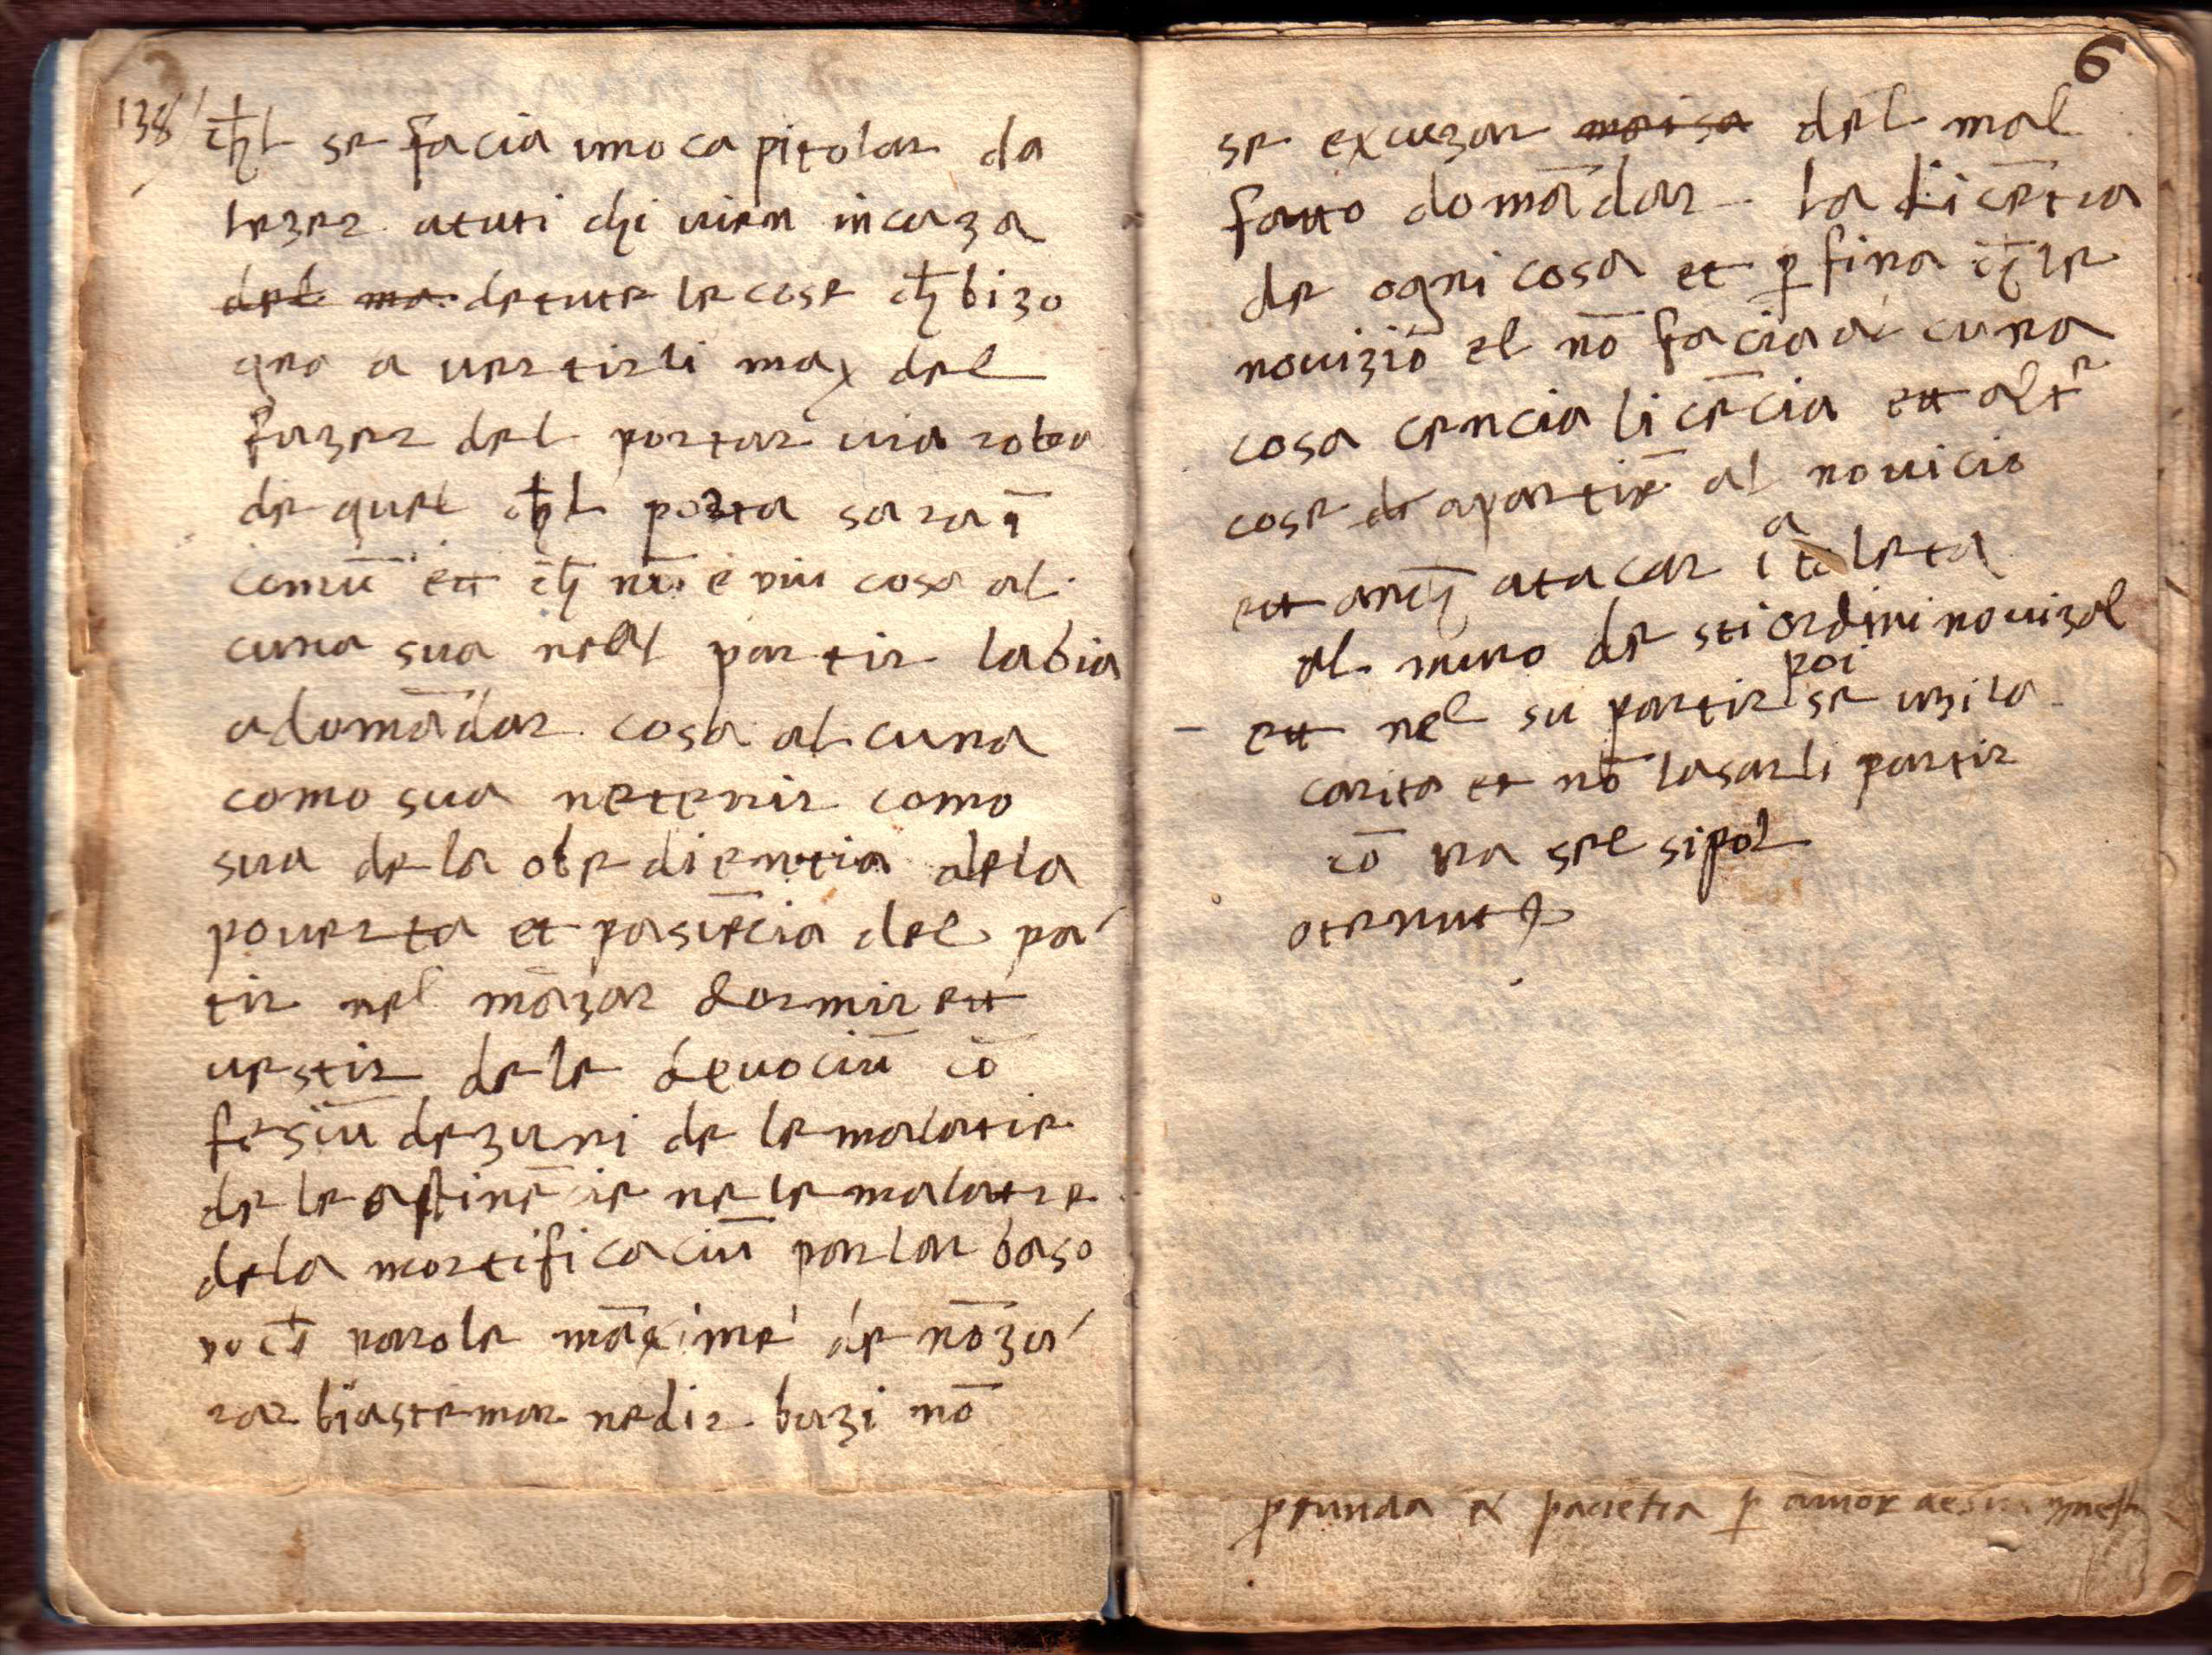 138
ch̄l se facia uno capitolar da
lezer atuti chi vien in caza
del ma. de tute le cose ch̄ bizo
gna a vertirli max del
fazer del portar via roba
de quel ch̄l porta sara ī
comū et ch̄ nō è piu cosa al
cuna sua nel partir labia
adomādar cosa al cuna
como sua ne tenir como
sua de la obedientia dela
poverta et pasiēcia del pa
tir nel māzar dormir et
vestir de le devociū cō
fesiū dezuni de le malatie
de le astinēcie ne le malatie
dela mortificaciū parlar baso
poch̄ parole māxime de nō zu
rar biastemar ne dir buzi nō
6
se excuzar del mal
fatto domādar la licētia
de ogni cosa et p fina ch̄ le
novizio el nō facia al cuna
cosa cencia licēcia et altre
cose de apartiē al novicio
et anch̄ atacar ī taleta
al muro de sti ordini novizal
et nel su partir poi se uzi la
carita et nō lasarli partir
cō na sel si pol
otenut